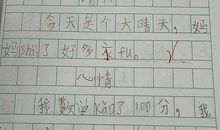 今天是个大晴天，妈
妈shi了好多衣fu。
心情
我数学kǎo了100分，我